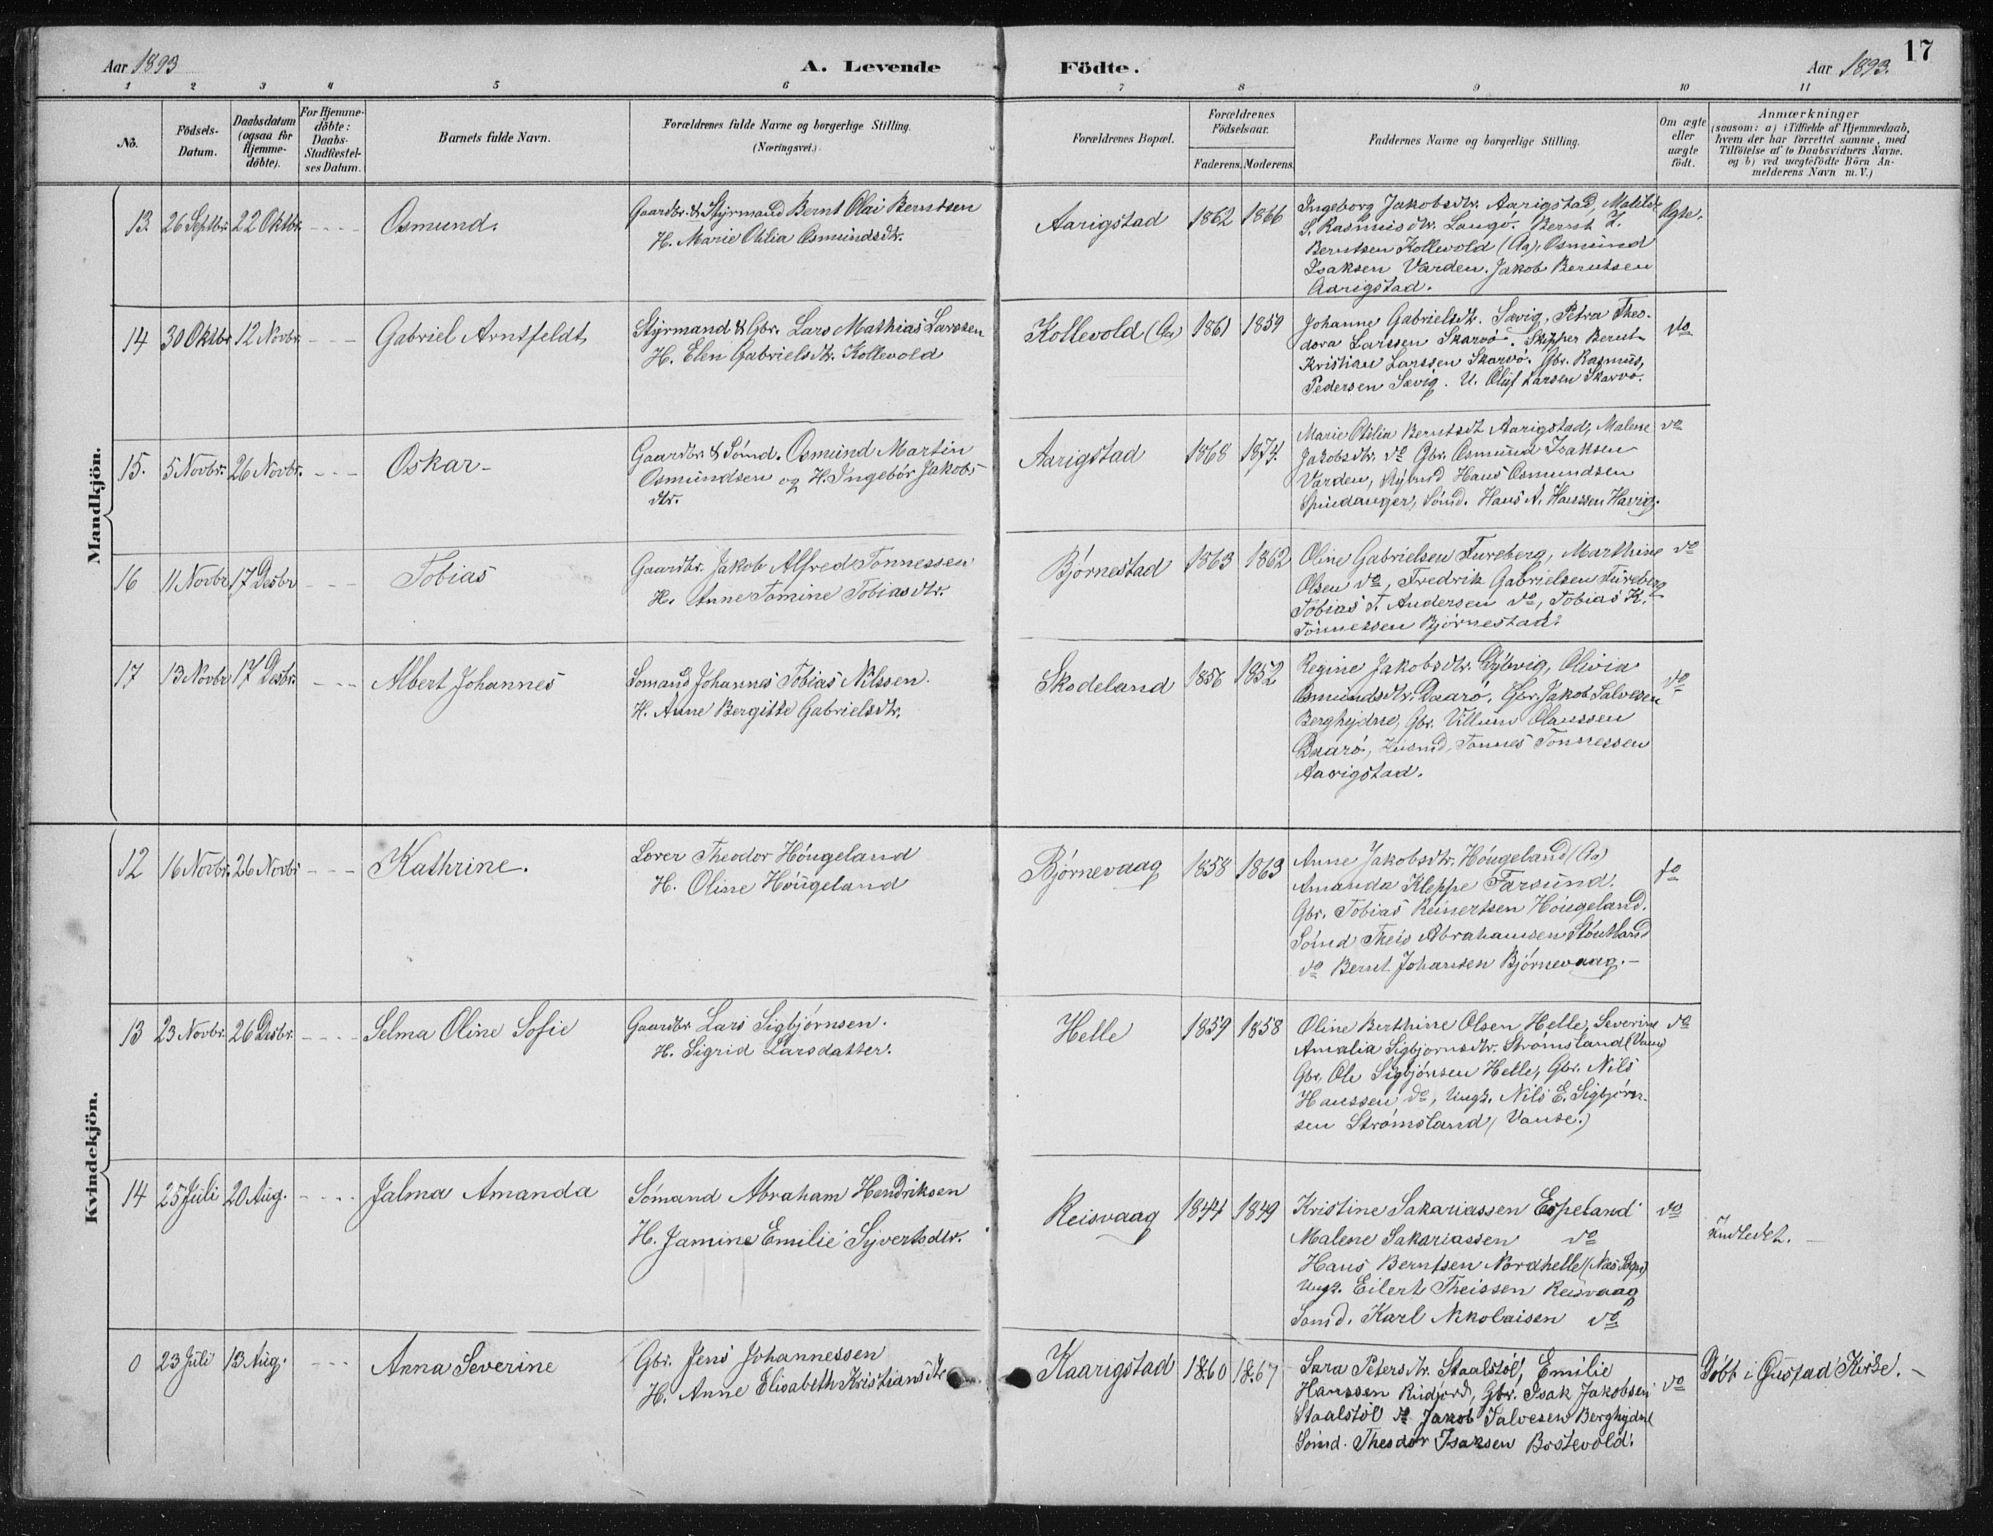 17
Aar 1893
A. Levende Födte.
Aar 1893.
1 2 3 4 5 6 7 8 9 10 11
No.
Födsels-Datum.
Daabsdatum (ogsaa for Hjemme-döbte).
For Hjemme-döbte: Daabs-Stadfæstel-ses Datum.
Barnets fulde Navn.
Forældrenes fulde Navne og borgerlige Stilling. (Næringsvei.)
Forældrenes Bopæl.
Forældrenes Födselsaar.
Faderens. Moderens.
Faddernes Navne og borgerlige Stilling.
Om ægte eller uægte födt.
Anmærkninger
(saasom: a) i Tilfælde af Hjemmedaab,
hvem der har forrettet samme, med
Tilföielse af to Daabsvidners Navne.
og b) ved uægtefödte Börn An-
melderens Navn m. V.)
Mandkjön.
13. 26 Septbr. 22 Oktbr. Osmund.
Gaardbr. & Styrmand Bernt Olai Berntsen
H. Marie Otilia Osmundsdtr.
Aarigstad 1862 1866
Ingeborg Jakobsdtr. Aarigstad,
S. Rasmusdtr. Langø. Bernt
Berntsen Kollevold (Aa), Osmund
Isaksen Varden. Jakob Berntsen
Aarigstad.
Ægte.
14 30 Oktbr. 12 Novbr. Gabriel Arntfeldt
Styrmand & Gbr. Lars Mathias Larssen
H. Elen Gabrielsdtr. Kollevold
Kollevold (Aa) 1861 1859
Johanne Gabrielsdtr. Sævig, Petra Theo-
dora Larssen Skarvø. Skipper Bernt
Kristian Larssen Skarvø. Gbr. Rasmus
Pedersen Sævig. U. Oluf Larsen Skarvø.
do
15. 5 Novbr. 26 Novbr. Oskar
Gaardbr. & Sömd. Osmund Martin
Osmundsen og H. Ingebor Jakobs-
dtr.
Aarigstad 1868 1874.
Marie Otilia Berntsdt Aarigstad, Malene
Jakobsdtr. do Gbr. Osmund Isaksen
Varden, Hans Osmundsen
Spindanger, Sömd. Hans A. Hanssen Havig.
do
16 11 Novbr 17 Desbr Tobias
Gaardbr. Jakob Alfred Tonnessen
H. Anne Tomine Tobiasdtr.
Bjørnestad 1863 1862
Oline Gabrielsen Fureberg, Marthine
Olsen do, Fredrik Gabrielsen Fureberg
Tobias T. Andersen do, Tobias K.
Tönnessen Bjørnestad.
do
17 13 Novbr 17 Desbr. Albert Johannes
Somand Johannes Tobias Nilssen.
H. Anne Bergitte Gabrielsdtr.
Skodeland 1856 1852
Regine Jakobsdtr. Dybvig, Olivia
Osmundsdtr. Daarø. Gbr. Jakob Salvesen
Berghejdne, Gbr. Villum Olaussen
Daarø, Tønnes Tønnessen
Aarigstad.
do
Kvindekjön.
12 16 Novbr. 26 Novbr Kathrine.
Theodor Höugeland
H. Oline Höugeland
Bjørnevaag 1858 1863
Anne Jakobsdtr. Höugeland (Aa)
Amanda Kleppe Farsund.
Gbr. Tobias Reinertsen Höugeland.
Sömd Theis Abrahamsen
do Bernt Johansen Bjørnevaag.
do
13 23 Novbr. 26 Desbr. Selma Oline Sofie
Gaardbr Lars Sigbjørnsen.
H. Sigrid Larsdatter.
Helle 1859 1858
Oline Berthine Olsen Helle, Severine
Amalia Sigbjornsdtr. Strømsland (Vanse)
Gbr. Ole Sigbjönsen Helle, Gbr. Nils
Hanssen do, Ungk. Nils E. Sigbjørn-
sen Strømsland (Vanse.)
do
14 25 Juli 20 Aug. Jalma Amanda
Sömand Abraham Hendriksen
H. Jamine Emilie Syvertsdtr.
Reisvaag 1844 1849
Kristine Sakariassen Espeland
Malene Sakariassen do
Hans Berntsen Nordhelle (Næs Sogn)
Ungk. Eilert Theissen Reisvaag
Somd. Karl Nikolaisen do
do
Indledet.
0 23 Juli 13 Aug. Anna Severine
Gbr. Jens Johannessen
H. Anne Elisabeth Kristiansdtr
Kaarigstad 1860 1867
Sara Petersdtr. Staalstöl, Emilie
Hanssen Rudjord, Gbr. Isak Jakobsen
Staalstöl do Jakob Salvesen Berghejdne
Sömd. Theodor Isaksen Bostevold.
do
Döbt i Gustad Kirke.